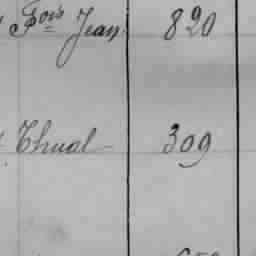 Fois Jean 820
Thual 309